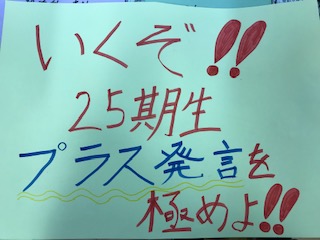 いくぞ!!
25期生
プラス発言を
極めよ!!